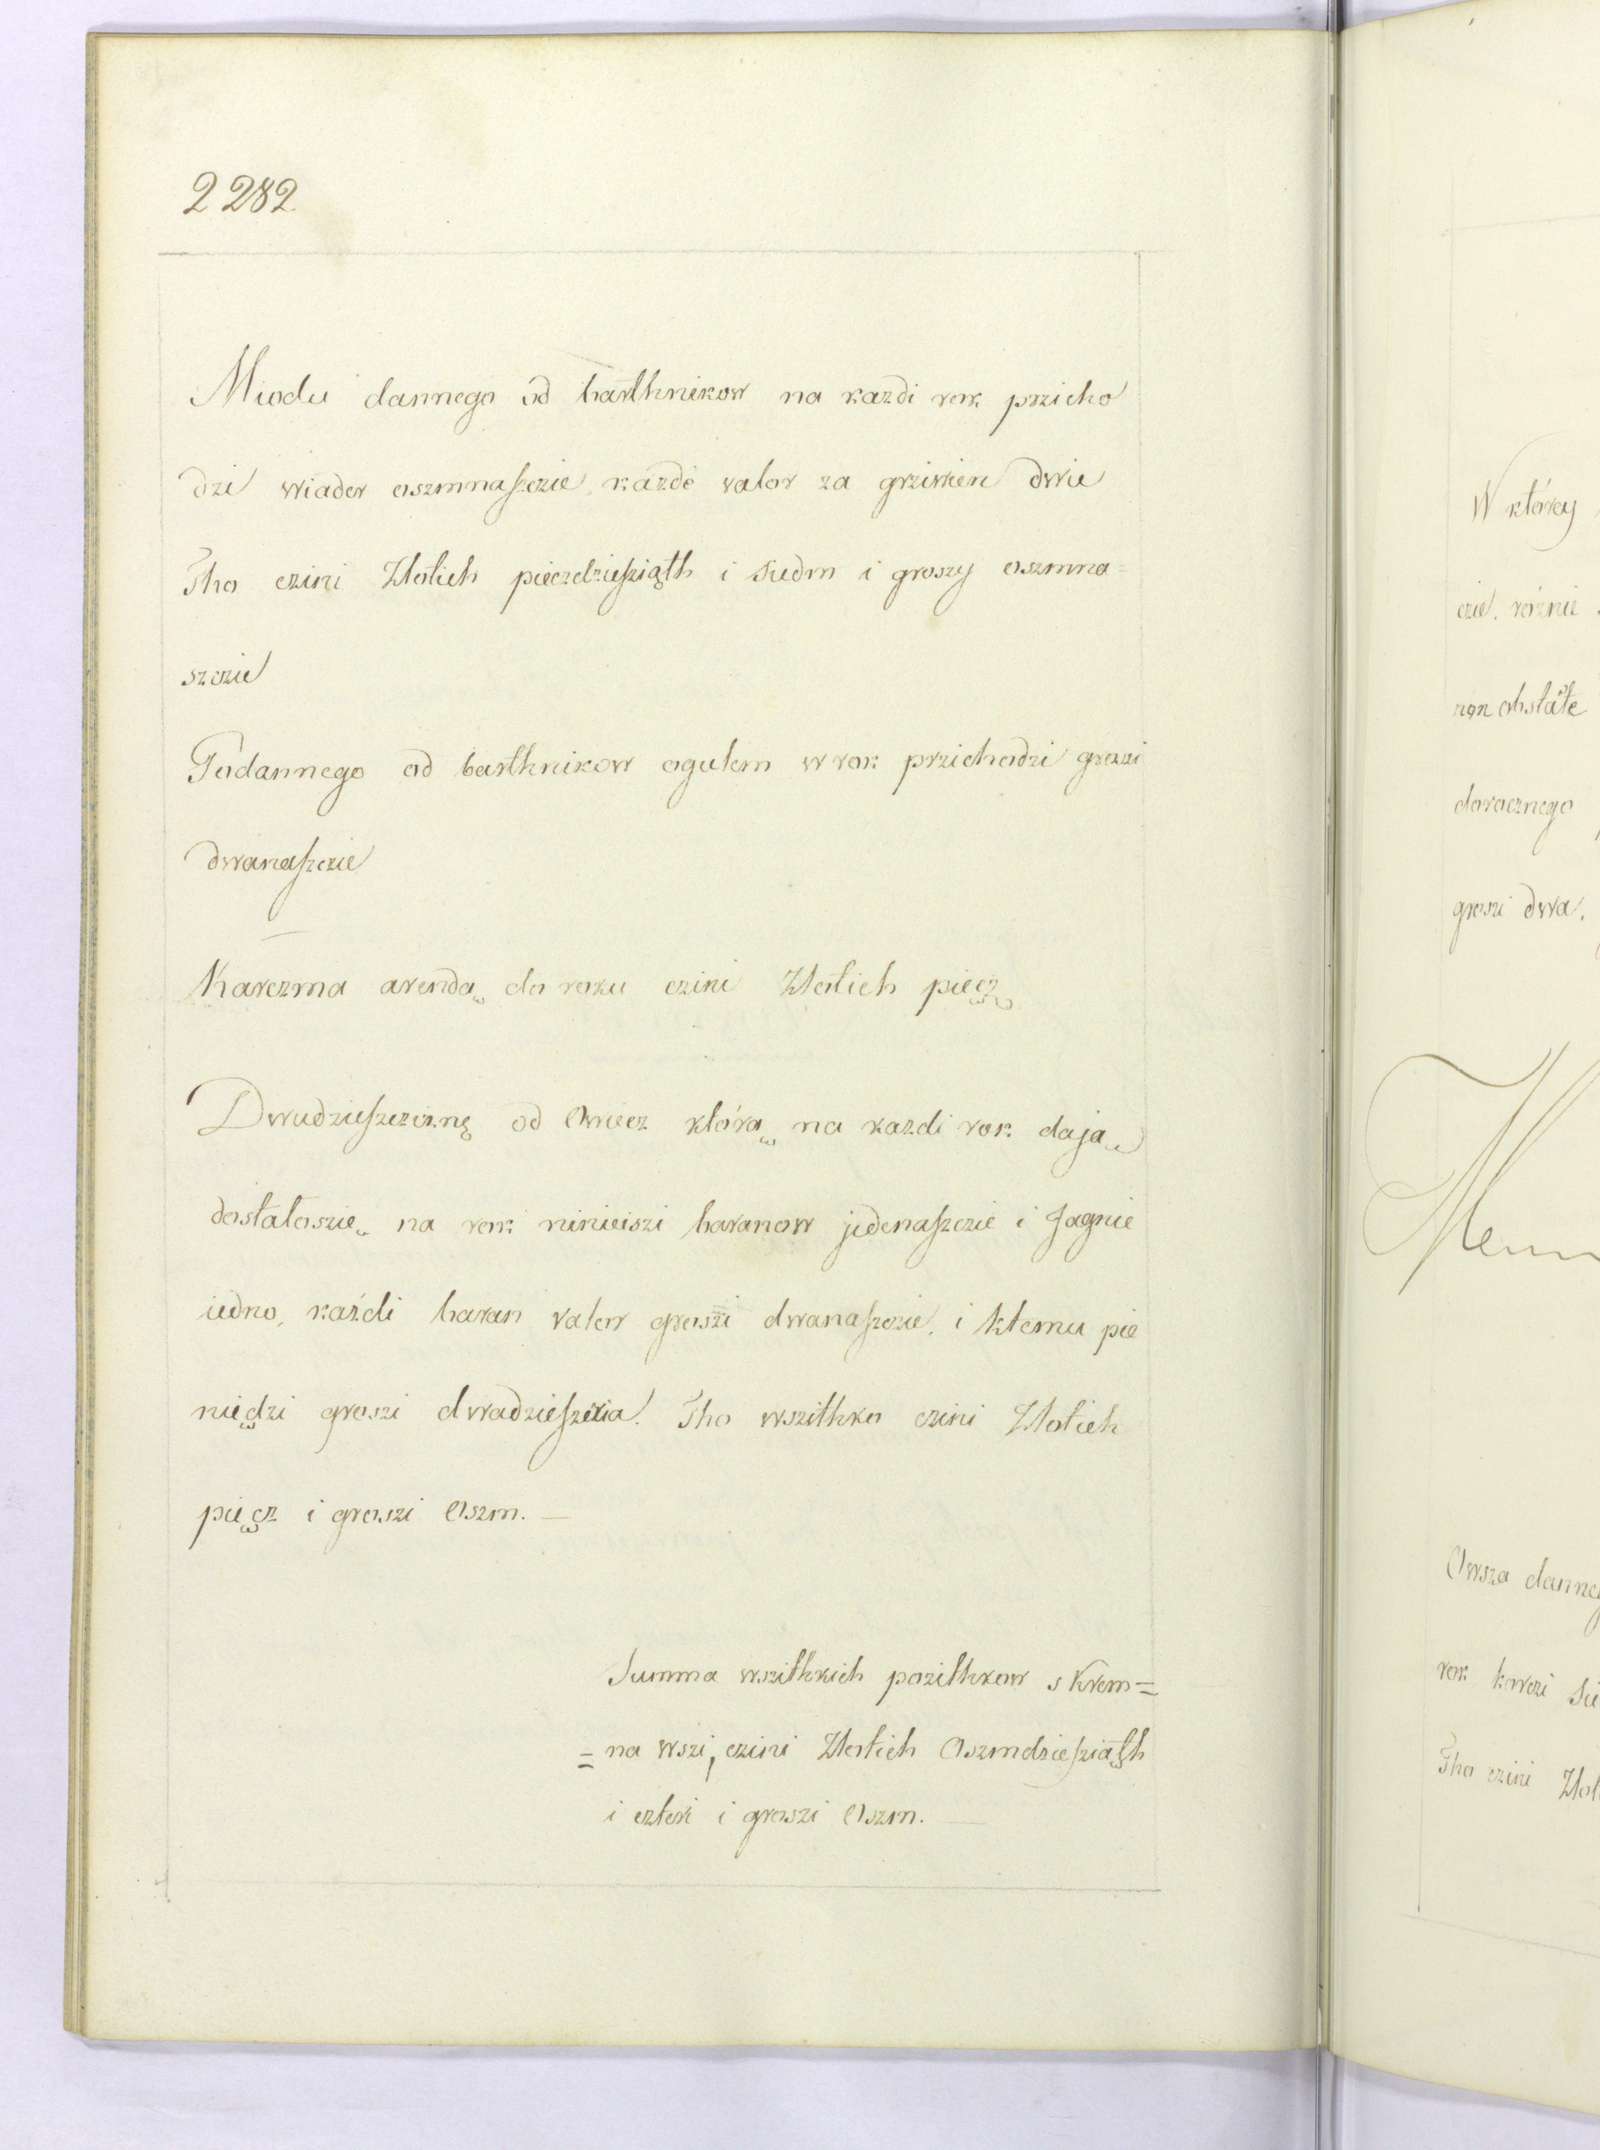 2282
Miodu dannego od barthnikow na kazdi rok przicho
dzi wiader oszmnaszcie, kazde valor za grziwien dwie
Tho czini Zlotich pieczdziesziąth i siedm i groszy oszmna=
szczie
Podannego od barthnikow ogulem w rok przichodzi groszi
dwanaszczie
Karczma arendą do roku czini Zlotich pięcz
Dwudzieszcziznę od Owiecz którą na kazdi rok dają
dostałoszię na rok ninieiszi baranow jedenaszczie i Jagnie
iedno, każdi baran valor groszi dwanaszczie, i ktemu pie
niędzi groszi dwadzieszczia. Tho wszithko czini Zlotich
pięcz i groszi Oszm. —
Summa wszithkich pozithkow s Krem=
=na wszi, czini Zlotich Oszmdziesziąth
i czteri i groszi Oszm. —
W którey
czie, rożnie
non obstāte
dorocznego
groszi dwa.
Owsza
rok korczi
Tho czini